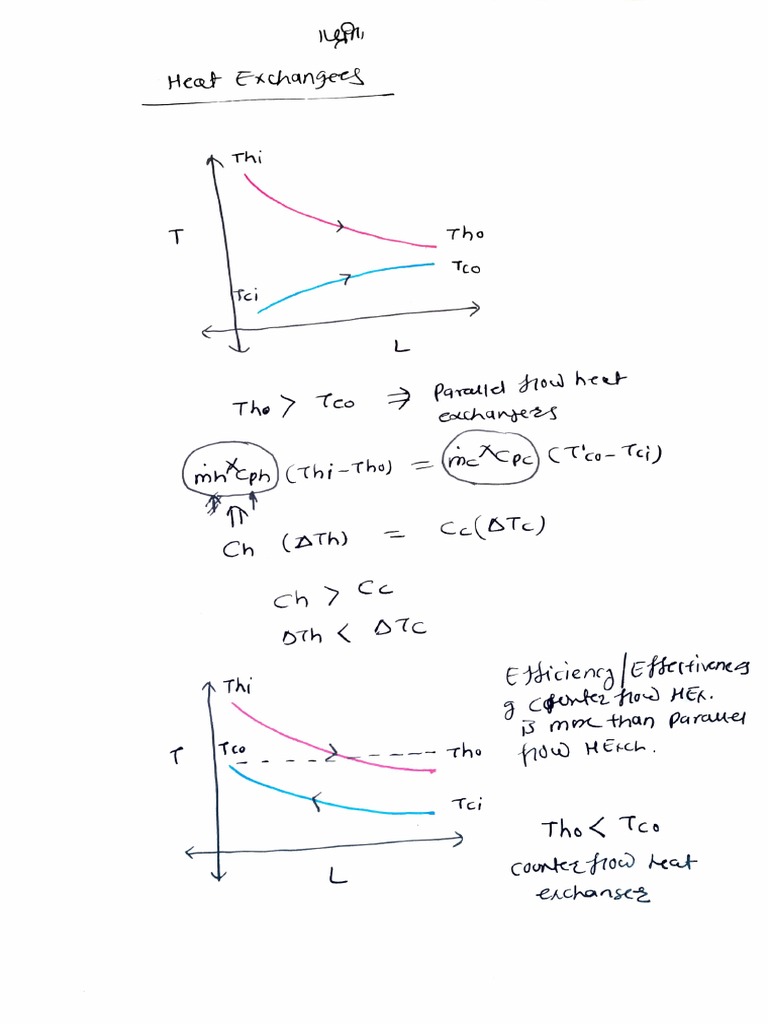 Heat Exchangers
Thi
T
Tho
Tco
Tci
L
Tho > Tco ⇒ Parallel flow heat
exchangers
ṁh × Cph (Thi - Tho) = ṁc × Cpc (Tco - Tci)
⇑
Ch (ΔTh) = Cc (ΔTc)
Ch > Cc
ΔTh < ΔTc
Efficiency/Effectiveness
of counter flow HEx.
is more than Parallel
flow HExch.
Thi
T
Tco
Tho
Tci
L
Tho < Tco
counter flow heat
exchanger